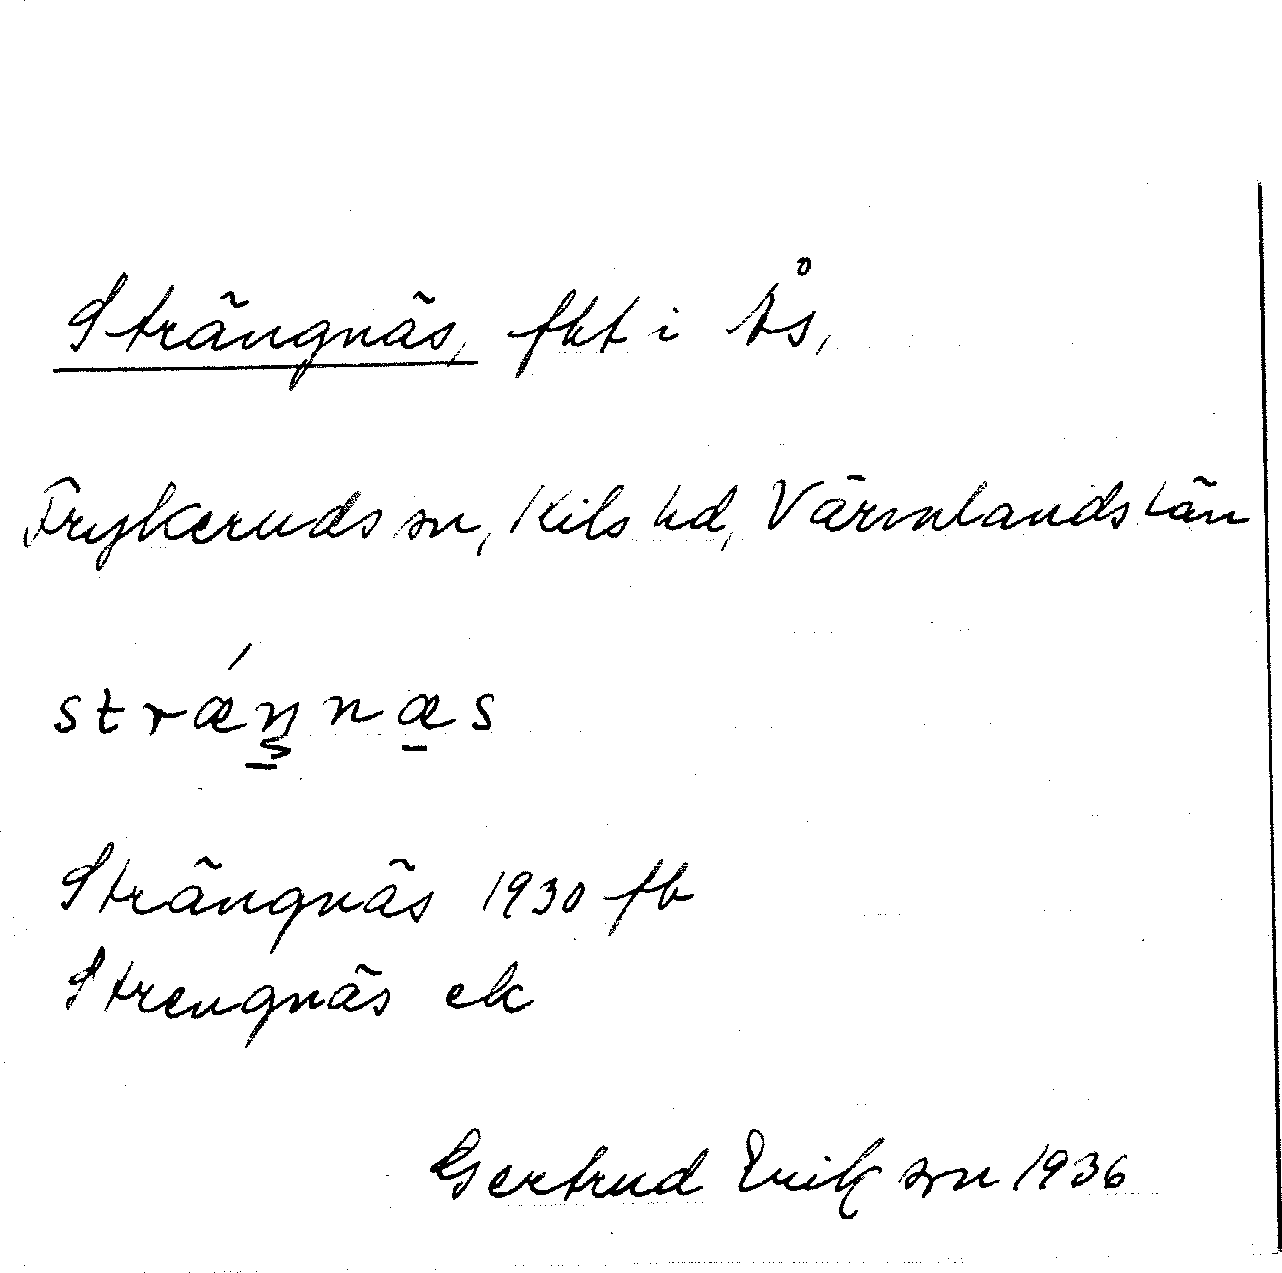 Strängnäs, fkt i Ås,
Frykeruds sn, Kils hd, Värmlands län
stræ´ŋ̱næ̱s
Strängnäs 1930 fb
Strengnäs ek
Gertrud Erikson 1936